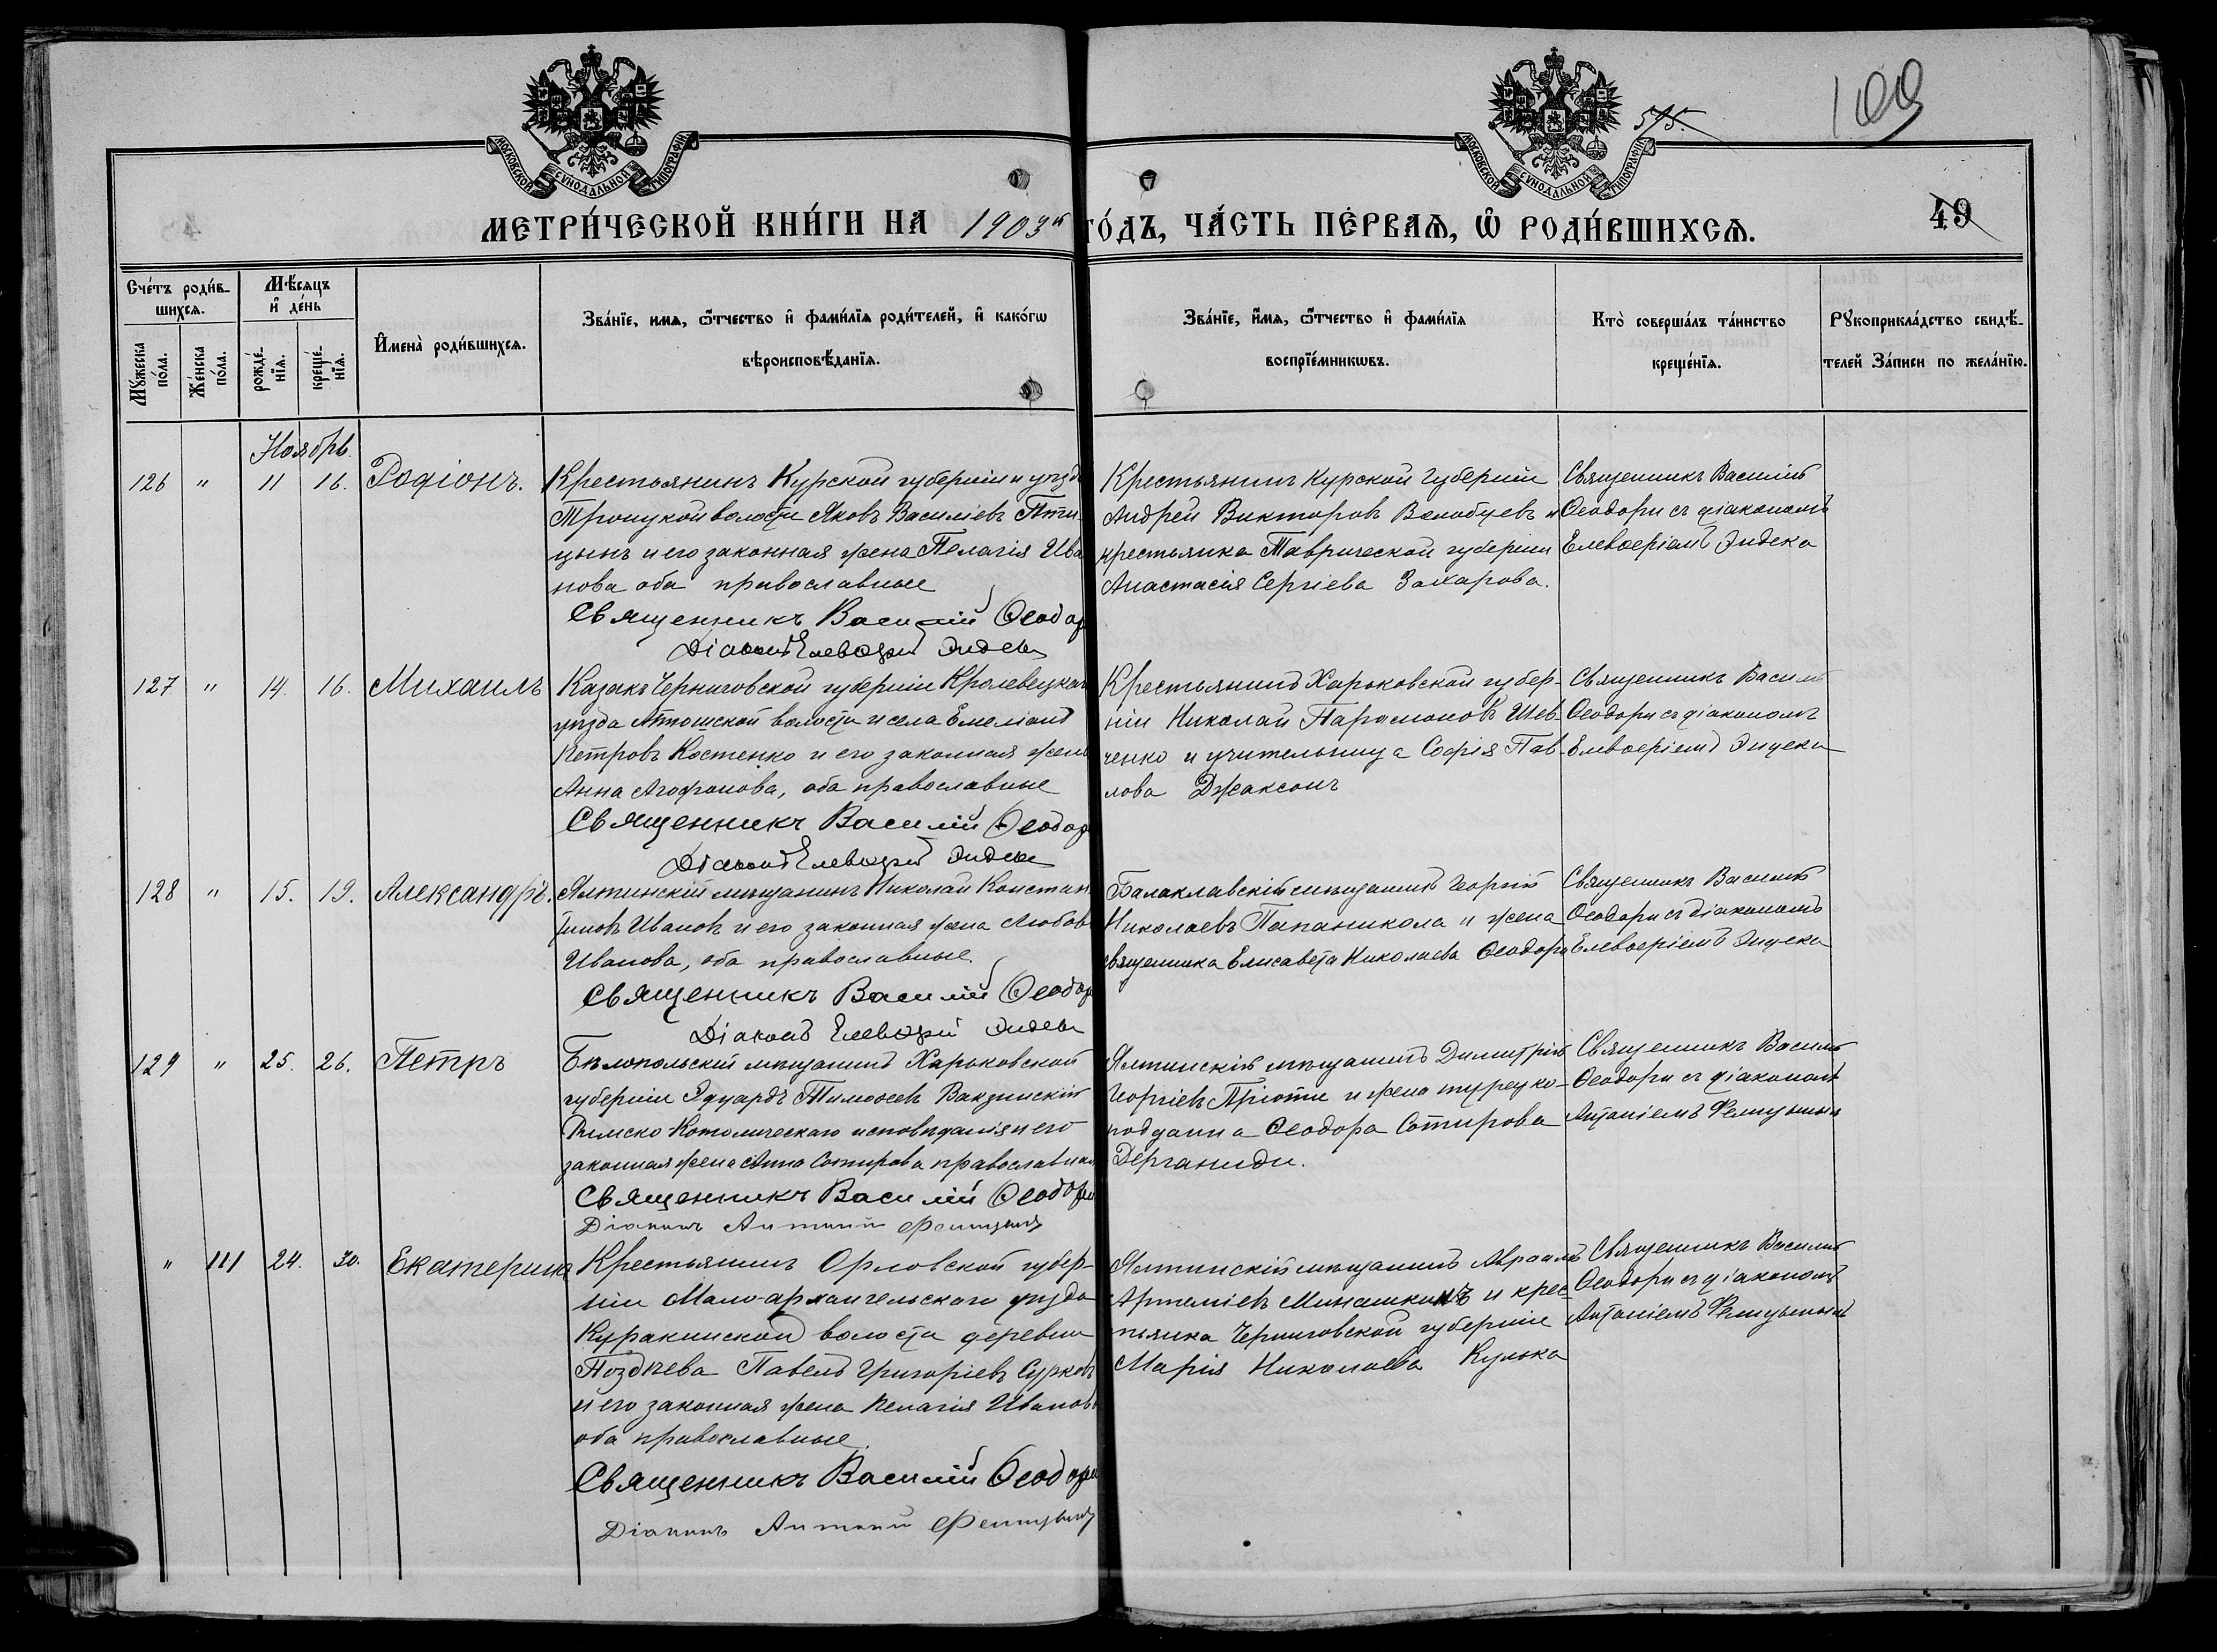 109
515.
МОСКОВСКОЙ СѴНОДАЛЬНОЙ ТИПОГРАФІИ
МОСКОВСКОЙ СѴНОДАЛЬНОЙ ТИПОГРАФІИ
49
МЕТРИ́ЧЕСКОЙ КНИ́ГИ НА 1903й ГО́ДЪ, ЧА́СТЬ ПЕ́РВАѦ, Ѡ҆ РОДИ́ВШИХСѦ.
Сче́тъ роди́в-
шихсѧ.
Мꙋ́жеска по́ла.
Же́нска по́ла.
Мѣ́сѧцъ
и҆ де́нь
рожде́-
нїѧ.
креще́-
нїѧ.
И҆мена̀ роди́вшихсѧ.
Зва́нїе, имѧ, ѻ҆́тчество и҆ фами́лїѧ роди́телей, и҆ како́гѡ
вѣроисповѣ́данїѧ.
Зва́нїе, и҆́мѧ, ѻ҆́тчество и҆ фами́лїѧ
воспрїе́мникѡвъ.
Кто̀ соверша́лъ та́инство
креще́нїѧ.
Рꙋкоприкла́дство свидѣ́-
телей За́писи по жела́нїю.
Ноябрь.
126 " 11 16. Родіонъ.
Крестьянинъ Курской губерніи и уѣзда
Троицкой волости Яковъ Василіевъ Пти-
цынъ и его законная жена Пелагія Ива
нова оба православные
Священникъ Василій Ѳеодор
Діаконъ Елевѳерій Эндека
Крестьянинъ Курской губерніи
Андрей Викторовъ Волобуевъ и
крестьянка Таврической губерніи
Анастасія Сергіева Захарова.
Священникъ Василій
Ѳеодори съ діакономъ
Елевѳеріемъ Эндека
127 " 14. 16. Михаилъ
Казакъ Черниговской губерніи Кролевецкаго
уѣзда волости и села Емеліанъ
Петровъ Костенко и его законная жена
Анна Агафонова, оба православные
Священникъ Василій Ѳеодор
Діаконъ Елевѳерій Эндека
Крестьянинъ Харьковской губер-
ніи Николай Парамоновъ Шев-
ченко и учительница Софія Пав-
лова Джаксонъ
Священникъ Василій
Ѳеодори съ діакономъ
Елевѳеріемъ Эндека
128 " 15. 19. Александръ.
Ялтинскій мѣщанинъ Николай Констан
тиновъ Ивановъ и его законная жена Любовь
Иванова, оба православные.
Священникъ Василій Ѳеодор
Діаконъ Елевѳерій Эндека
Балаклавскій мѣщанинъ Георгій
Николаевъ Папаникола и жена
священника Елисавета Николаева Ѳеодори
Священникъ Василій
Ѳеодори съ діакономъ
Елевѳеріемъ Эндека
129 " 25. 26. Петръ
Бѣлопольскій мѣщанинъ Харьковской
губерніи Эдуардъ Тимоѳеевъ Вакзинскій
Римско Католическаго исповѣданія и его
законная жена Анна Сотирова православная
Священникъ Василій Ѳеодори
Діаконъ Антоній
Ялтинскій мѣщанинъ Димитрій
Георгіевъ Пріоти и жена турецко-
подданна Ѳеодора Сотирова
Дерганиди.
Священникъ Василій
Ѳеодори съ діакономъ
Антоніемъ
" 111 24. 30. Екатерина
Крестьянинъ Орловской губер-
ніи Мало-архангельскаго уѣзда
Куракинской волости деревни
Позднева Павелъ Григоріевъ Сурковъ
и его законная жена Пелагія Иванова
оба православные.
Священникъ Василій Ѳеодори
Діаконъ Антоній
Ялтинскій мѣщанинъ Авраамъ
Артеміевъ Минашкинъ и крес-
тьянка Черниговской губерніи
Марія Николаева Кулька
Священникъ Василій
Ѳеодори съ діакономъ
Антоніемъ